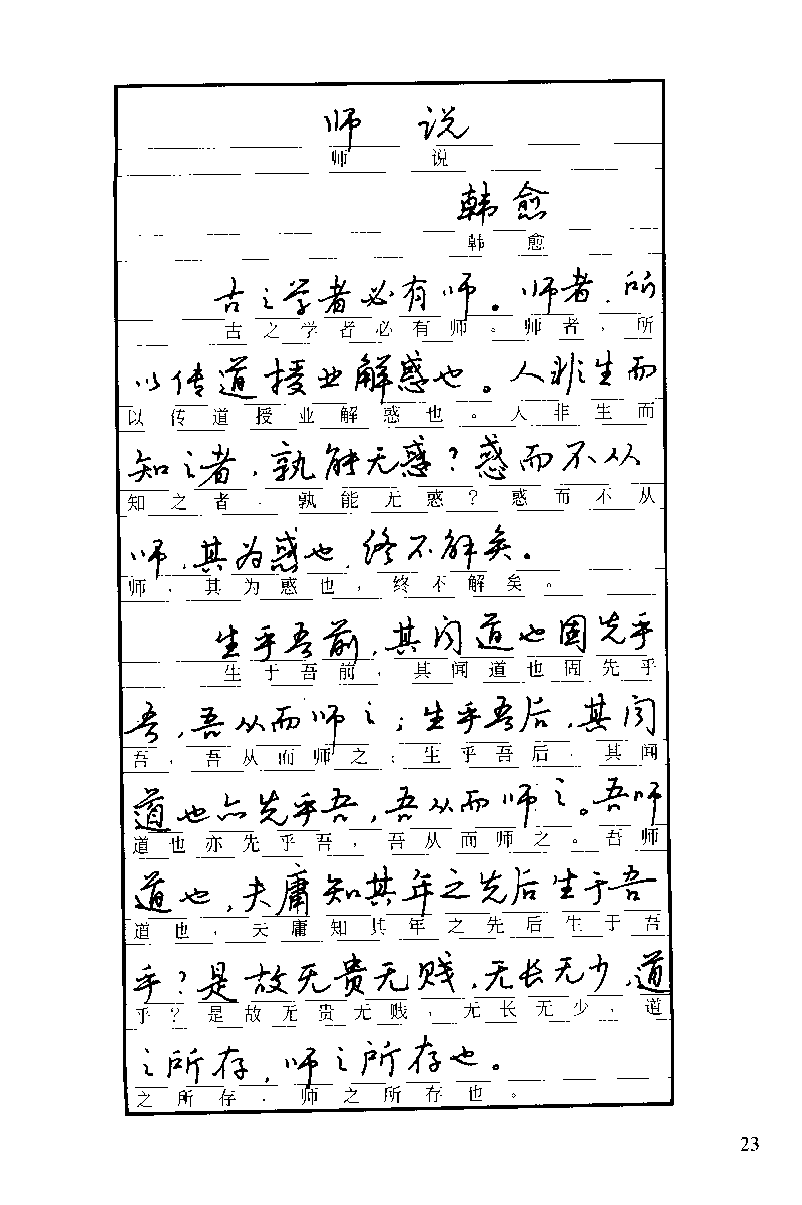 师 说
师 说
韩愈
韩 愈
古之学者必有师。师者,所
古之学者必有师。师者,所
以传道授业解惑也。人非生而
以传道授业解惑也。人非生而
知之者,孰能无惑?惑而不从
知之者,孰能无惑?惑而不从
师,其为惑也,终不解矣。
师,其为惑也,终不解矣。
生乎吾前,其闻道也固先乎
生于吾前,其闻道也固先乎
吾,吾从而师之;生乎吾后,其闻
吾,吾从而师之;生乎吾后,其闻
道也亦先乎吾,吾从而师之。吾师
道也亦先乎吾,吾从而师之。吾师
道也,夫庸知其年之先后生于吾
道也,夫庸知其年之先后生于吾
乎?是故无贵无贱,无长无少,道
乎?是故无贵无贱,无长无少,道
之所存,师之所存也。
之所存,师之所存也。
23